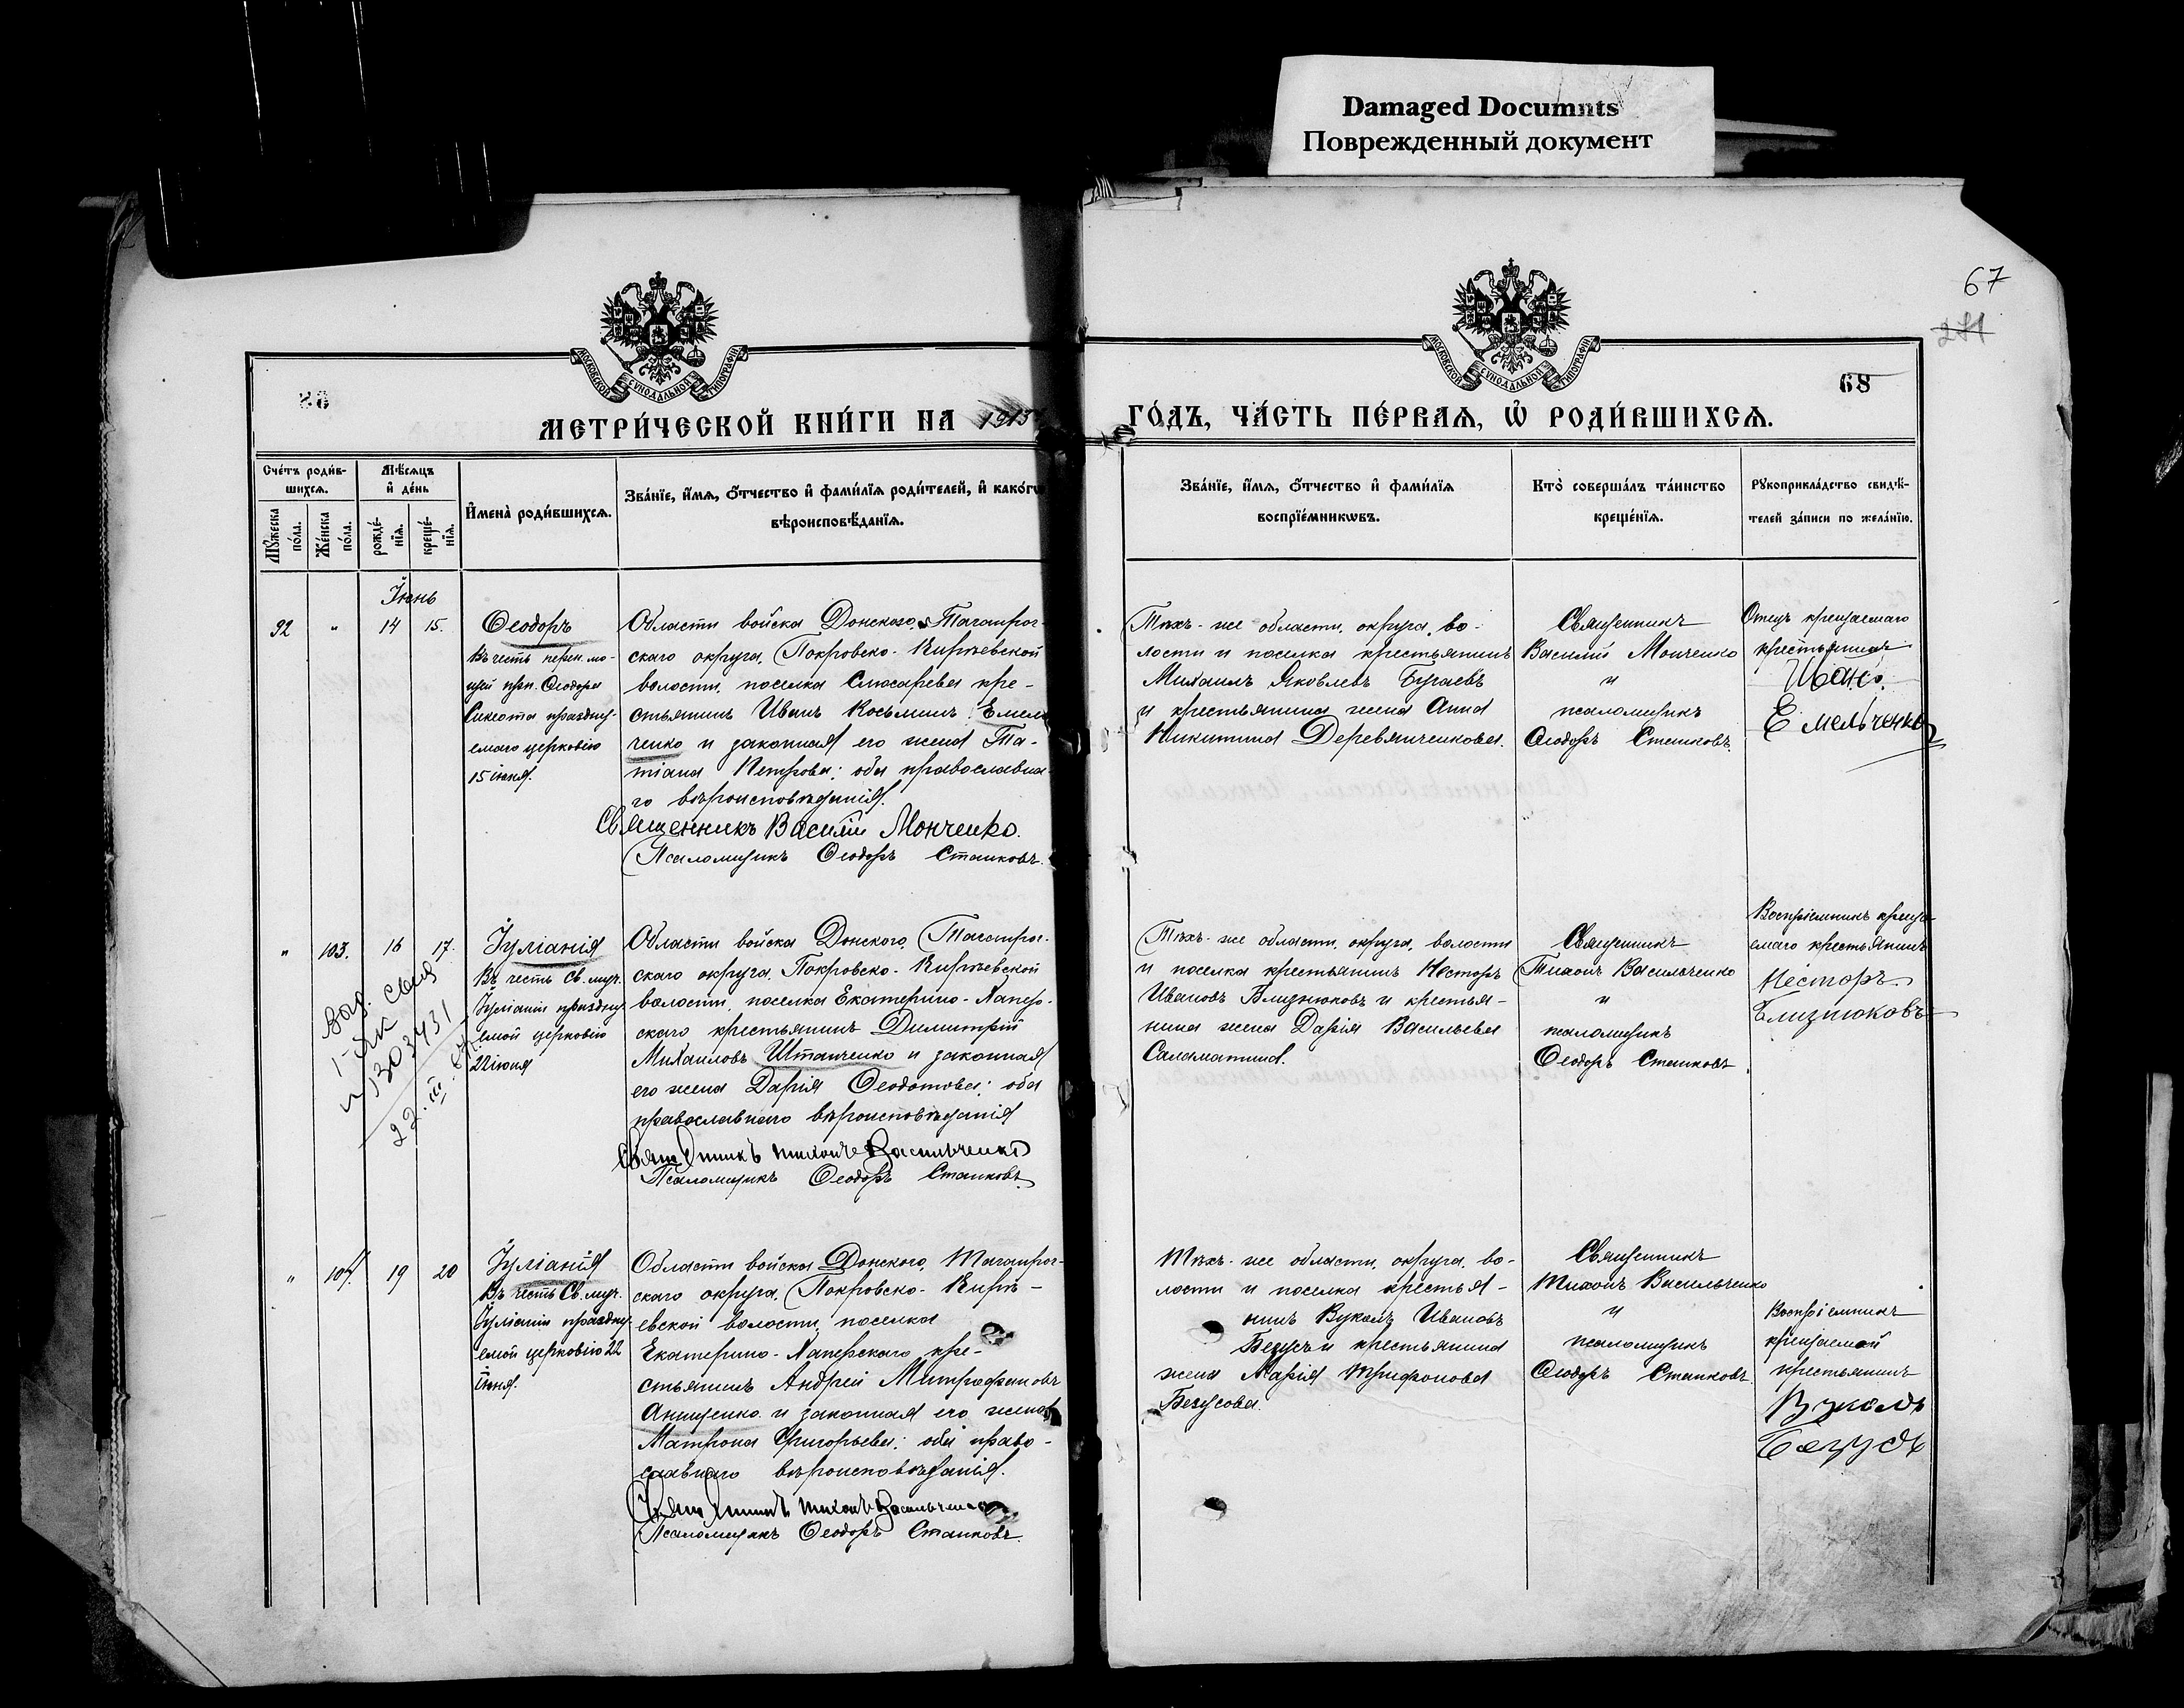 Damaged Documnts
Поврежденный документ
67
68
МОСКОВСКОЙ СѴНОДАЛЬНОЙ ТИПОГРАФІИ
МОСКОВСКОЙ СѴНОДАЛЬНОЙ ТИПОГРАФІИ
МЕТРИ́ЧЕСКОЙ КНИ́ГИ НА 1913
ГО́ДЪ, ЧА́СТЬ ПЕ́РВАЯ, Ѡ РОДИ́ВШИХСЯ.
Сче́тъ роди́в-
шихся.
Мѣ́сяцъ
и҆ де́нь
Му́жеска
по́ла.
Же́нска
по́ла.
рожде́-
нїя.
креще́-
нїя.
И҆мена̀ роди́вшихся.
Зва́нїе, и҆́мя, ѻ҆́тчество и҆ фами́лїя роди́телей, и҆ како́гѡ
вѣроисповѣ́данїя.
Зва́нїе, и҆́мя, ѻ҆́тчество и҆ фами́лїя
воспрїе́мникѡвъ.
Кто̀ соверша́лъ та́инство
креще́нїя.
Рꙋкоприкла́дство свидѣ́-
телей за́писи по жела́нїю.
Іюнь
92 " 14 15.
Ѳеодоръ
Въ честь перен. мо-
щей прп. Ѳеодора
Сикеота праздну-
емаго церковію
15 іюня.
Области войска Донскаго, Таганрог-
скаго округа, Покровско-Кирѣевской
волости, поселка Слюсарева кре-
стьянинъ Иванъ Косьминъ Емель
ченко и законная его жена Та-
тіана Петрова; оба православна-
го вѣроисповѣданія.
Священникъ Василій Монченко.
Псаломщикъ Ѳеодоръ Станковъ.
Тѣхъ-же области, округа, во-
лости и поселка крестьянинъ
Михаилъ Яковлевъ Бугаевъ
и крестьянина жена Анна
Никитина Деревянченкова.
Священникъ
Василій Монченко
и
псаломщикъ
Ѳеодоръ Станковъ.
Отецъ крещаемаго
крестьянинъ
Иванъ
Емельченко
" 103. 16 17.
Іуліанія
Въ честь Св. муч.
Іуліаніи праздну-
емой церковію
22 іюня
1303431
22. III.
Области войска Донского, Таганрог-
скаго округа, Покровско-Кирѣевской
волости, поселка Екатерино-Хапер-
скаго крестьянинъ Димитрій
Михаиловъ Штанченко и законная
его жена Дарія Ѳеодотова; оба
православнаго вѣроисповѣданія
Священникъ Тихонъ Васильченко
Псаломщикъ Ѳеодоръ Станковъ
Тѣхъ-же области, округа, волости
и поселка крестьянинъ Несторъ
Ивановъ Близнюковъ и крестья-
нина жена Дарія Васильева
Саламатина.
Священникъ
Тихонъ Васильченко
и
псаломщикъ
Ѳеодоръ Станковъ
Воспріемникъ креща-
емаго крестьянинъ
Несторъ
Близнюковъ
" 104. 19 20
Іуліанія
Въ честь Св. муч.
Іуліаніи праздну-
емой церковію 22
іюня.
Области войска Донского, Таганрог-
скаго округа, Покровско-Кирѣ-
евской волости, поселка
Екатерино-Хаперскаго кре-
стьянинъ Андрей Митрофановъ
Анищенко и законная его жена
Матрона Григорьева; оба право-
славнаго вѣроисповѣданія.
Священникъ Тихонъ Васильченко
Псаломщикъ Ѳеодоръ Станковъ.
Тѣхъ-же области, округа, во-
лости и поселка крестья-
нинъ Вуколъ Ивановъ
Бегусъ и крестьянина
жена Марія Трифонова
Бегусова.
Священникъ
Тихонъ Васильченко
и
псаломщикъ
Ѳеодоръ Станковъ.
Воспріемникъ
крещаемой
крестьянинъ
Вуколъ
Бегусъ